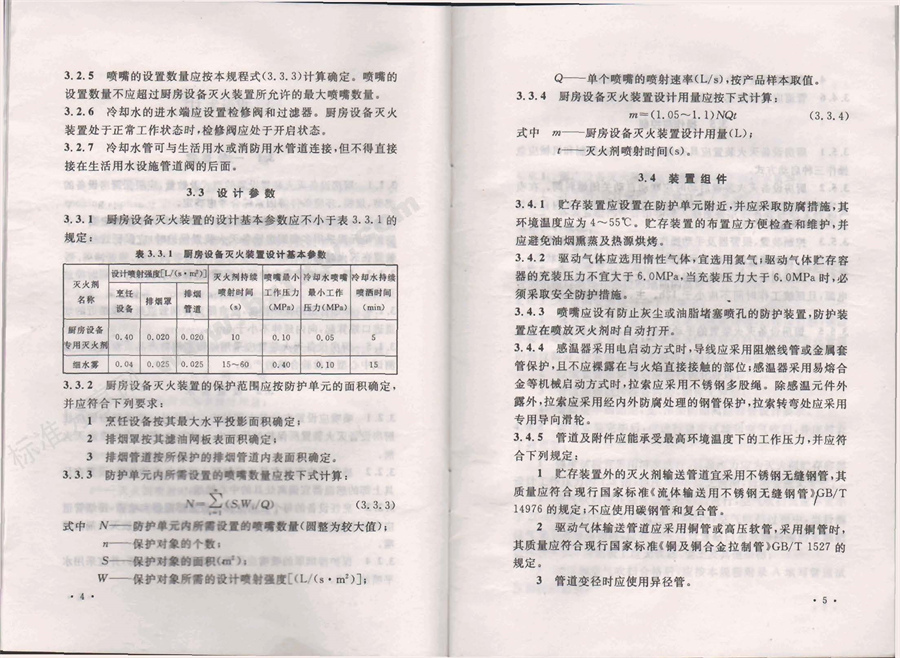 3.2.5 喷嘴的设置数量应按本规程式(3.3.3)计算确定。喷嘴的
设置数量不应超过厨房设备灭火装置所允许的最大喷嘴数量。
3.2.6 冷却水的进水端应设置检修阀和过滤器。厨房设备灭火
装置处于正常工作状态时,检修阀应处于开启状态。
3.2.7 冷却水管可与生活用水或消防用水管道连接,但不得直接
接在生活用水设施管道阀的后面。
3.3 设计参数
3.3.1 厨房设备灭火装置的设计基本参数应不小于表 3.3.1 的
规定:
表 3.3.1 厨房设备灭火装置设计基本参数
灭火剂名称 设计喷射强度[L/(s·m²)] 灭火剂持续喷射时间(s) 喷嘴最小工作压力(MPa) 冷却水喷嘴最小工作压力(MPa) 冷却水持续喷洒时间(min)
烹饪设备 排烟罩 排烟管道
厨房设备专用灭火剂 0.40 0.020 0.020 10 0.10 0.05 5
细水雾 0.04 0.025 0.025 15~60 0.40 0.10 15
3.3.2 厨房设备灭火装置的保护范围应按防护单元的面积确定,
并应符合下列要求:
1 烹饪设备按其最大水平投影面积确定;
2 排烟罩按其滤油网板表面积确定;
3 排烟管道按所保护的排烟管道内表面积确定。
3.3.3 防护单元内所需设置的喷嘴数量应按下式计算:
N=∑(SᵢWᵢ/Q) (3.3.3)
式中 N——防护单元内所需设置的喷嘴数量(圆整为较大值);
n——保护对象的个数;
S——保护对象的面积(m²);
W——保护对象所需的设计喷射强度[(L/(s·m²)];
·4·
Q——单个喷嘴的喷射速率(L/s),按产品样本取值。
3.3.4 厨房设备灭火装置设计用量应按下式计算:
m=(1.05~1.1)NQt (3.3.4)
式中 m——厨房设备灭火装置设计用量(L);
t——灭火剂喷射时间(s)。
3.4 装置组件
3.4.1 贮存装置应设置在防护单元附近,并应采取防腐措施,其
环境温度应为 4~55℃。贮存装置的布置应方便检查和维护,并
应避免油烟熏蒸及热源烘烤。
3.4.2 驱动气体应选用惰性气体,宜选用氮气;驱动气体贮存容
器的充装压力不宜大于 6.0MPa,当充装压力大于 6.0MPa 时,必
须采取安全防护措施。
3.4.3 喷嘴应设有防止灰尘或油脂堵塞喷孔的防护装置,防护装
置应在喷放灭火剂时自动打开。
3.4.4 感温器采用电启动方式时,导线应采用阻燃线管或金属套
管保护,且不应裸露在与火焰直接接触的部位;感温器采用易熔合
金等机械启动方式时,拉索应采用不锈钢多股绳。除感温元件外
露外,拉索应采用经内外防腐处理的钢管保护,拉索转弯处应采用
专用导向滑轮。
3.4.5 管道及附件应能承受最高环境温度下的工作压力,并应符
合下列规定:
1 贮存装置外的灭火剂输送管道宜采用不锈钢无缝钢管,其
质量应符合现行国家标准《流体输送用不锈钢无缝钢管》GB/T
14976 的规定;不应使用碳钢管和复合管。
2 驱动气体输送管道应采用铜管或高压软管,采用铜管时,
其质量应符合现行国家标准《铜及铜合金拉制管》GB/T 1527 的
规定。
3 管道变径时应使用异径管。
·5·